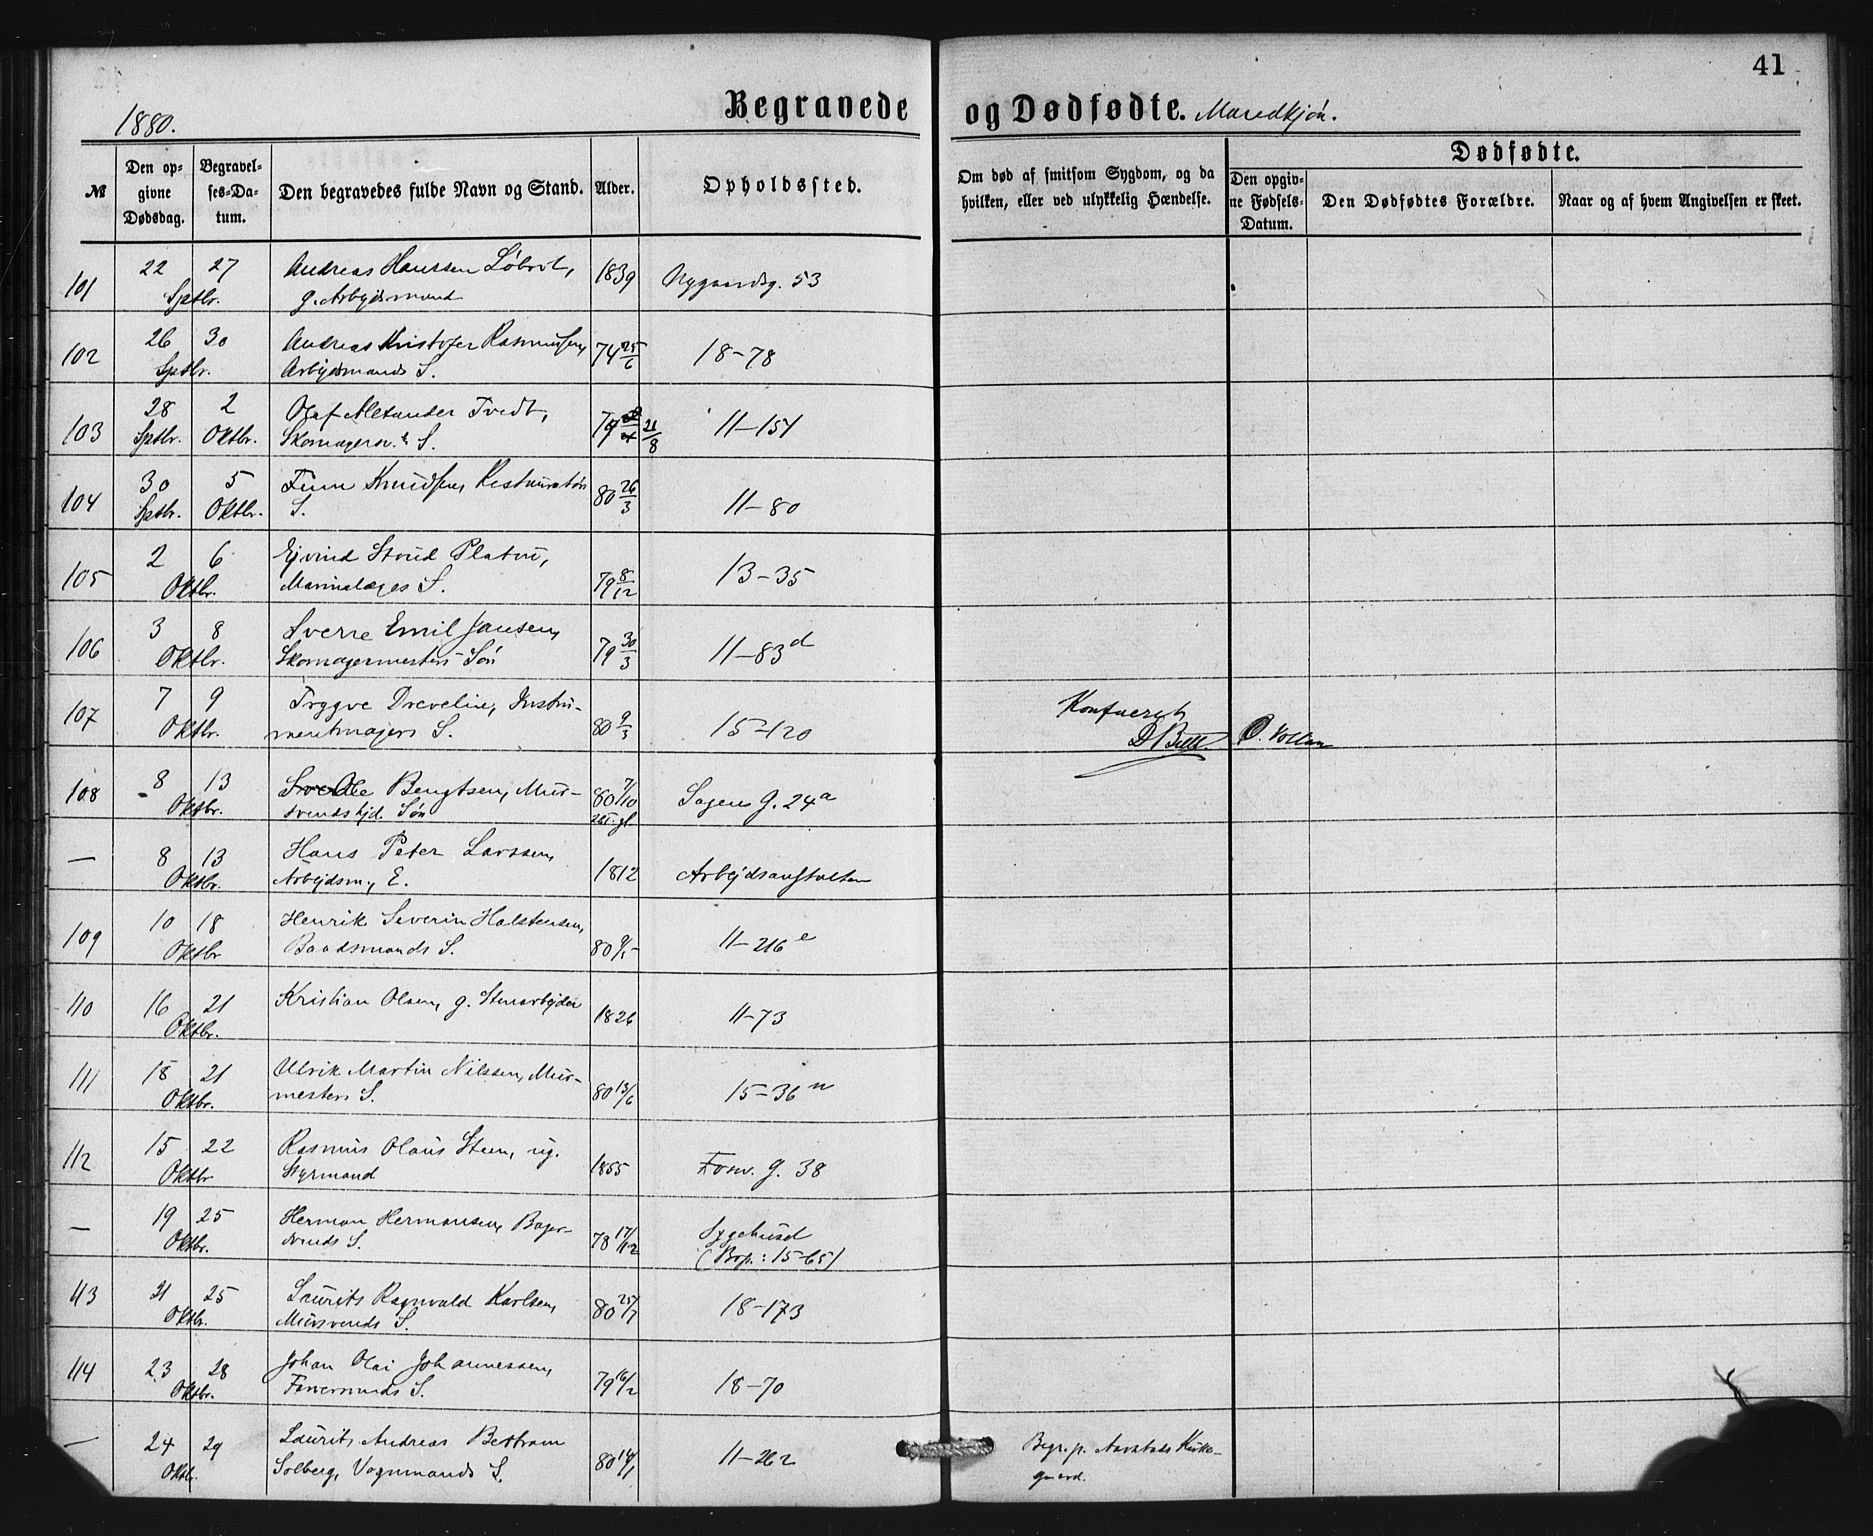 41
1880.
Begravede og Dødfødte. Mandkjøn.
№
Den opgivne Dødsdag.
Begravelses-Datum.
Den begravedes fulde Navn og Stand.
Alder.
Opholdssted.
Om død af smitsom Sygdom, og da hvilken, eller ved ulykkelig Hændelse.
Dødfødte.
Den opgivne Fødsels-Datum.
Den Dødfødtes Forældre.
Naar og af hvem Angivelsen er skeet.
101 22 27 Andreas Hanssen 1839 Nygaardsg. 53
Sptbr. g. Arbejdsmand
102 26 30 Andreas Kristofer Rasmussen, 74 25/6 18-78
Sptbr. Arbejdsmands S.
103 28 2 Olaf Alexander Tvedt, 79 21/8 11-151
Sptbr. Oktbr. S.
104 30 5 Finn Knudsen, Restauratør 80 26/3 11-80
Sptbr. Oktbr. S.
105 2 6 Ejvind Stoud Platou, 79 8/12 13-35
Oktbr. Marinelæges S.
106 3 8 Sverre Emil Jansen, 79 30/3 11-83d
Oktbr. Skomagermesters Søn
107 7 9 Tryggve Dreveline, Instru- 80 9/3 15-120
Oktbr. mentmagers S.
Konfereret
O. Vollan
108 8 13 Ole Bengtsen, Mur- 80 7/10 Sagens G. 24a
Oktbr. svends hjd. Søn
— 8 13 Hans Peter Larssen, 1812 Arbejdsanstalten
Oktbr. Arbejdsm., E.
109 10 18 Henrik Severin Halstensen, 80 9/5 11-216e
Oktbr Baadsmands S.
110 16 21 Kristian Olsen, g. Stenarbejder 1826 11-73
Oktbr.
111 18 21 Ulrik Martin Nilssen, Mur- 80 13/6 15-36n
Oktbr. mesters S.
112 15 22 Rasmus Olaus Steen, ug. 1855 Fosw. G. 38
Oktbr Styrmand
— 19 25 Herman Hermansen, Bager- 78 17/12 Sygehuset
Oktbr. svends S. (Bop.: 15-65)
113 21 25 Laurits Ragnvald Karlsen, 80 25/7 18-173
Oktbr. Mursvends S.
114 23 28 Johan Olai Johannessen, 79 16/2 18-70
Oktbr. S.
— 24 29 Laurits Andreas Bertram 80 14/1 11-262 Begr. p. Aarstads Kirke-
Oktbr. Solberg, Vognmands S. gaard.